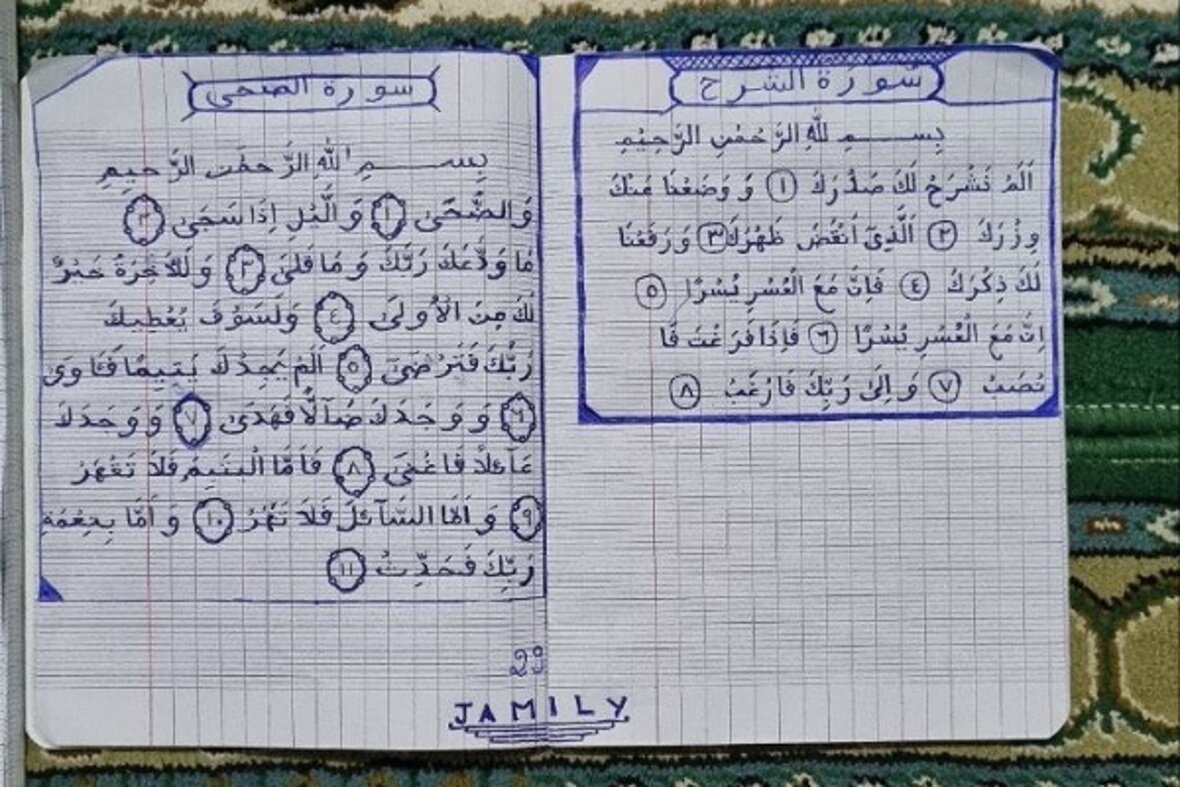 سورة الشرح
بِســـــمِ للّٰهِ الرَّحْمٰنِ الرَّحِيْمِ
اَلَمْ نَشْرَحْ لَكَ صَدْرَكَ ١ وَوَضَعْنَا عَنْكَ
وِزْرَكَ ٢ اَلَّذِىٓ اَنْقَضَ ظَهْرَكَ ٣ وَرَفَعْنَا
لَكَ ذِكْرَكَ ٤ فَاِنَّ مَعَ الْعُسْرِ يُسْرًا ٥
اِنَّ مَعَ الْعُسْرِ يُسْرًا ٦ فَاِذَا فَرَغْتَ فَا
نْصَبْ ٧ وَاِلىٰ رَبِّكَ فَارْغَبْ ٨
سورة الضحى
بِســـــمِ اللّٰهِ الرَّحمٰن الرَّحيمِ
وَالضُّحَىٰ ١ وَالَّيْلِ اِذَا سَجَىٰ ٢
مَا وَدَّعَكَ رَبُّكَ وَمَا قَلَىٰ ٣ وَلَلْاٰخِرَةُ خَيْرٌ
لَكَ مِنَ الْاُولَىٰ ٤ وَلَسَوْفَ يُعْطِيكَ
رَبُّكَ فَتَرْضَىٰ ٥ اَلَمْ يَجِدْكَ يَتِيمًا فَـَٔاوَىٰ
٦ وَوَجَدَكَ ضَآلًّا فَهَدَىٰ ٧ وَوَجَدَكَ
عَآئلاً فَاَغْنَىٰ ٨ فَاَمَّا الْيَتِيمَ فَلاَ تَقْهَرْ
٩ وَاَمَّا السَّآئلَ فَلاَ تَنْهَرْ ١٠ وَاَمَّا بِنِعْمَةِ
رَبِّكَ فَحَدِّثْ ١١
29
JAMILY